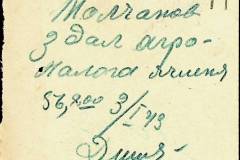 Толчанов
здал агро-
малога ячменя
56,200 3/I 43